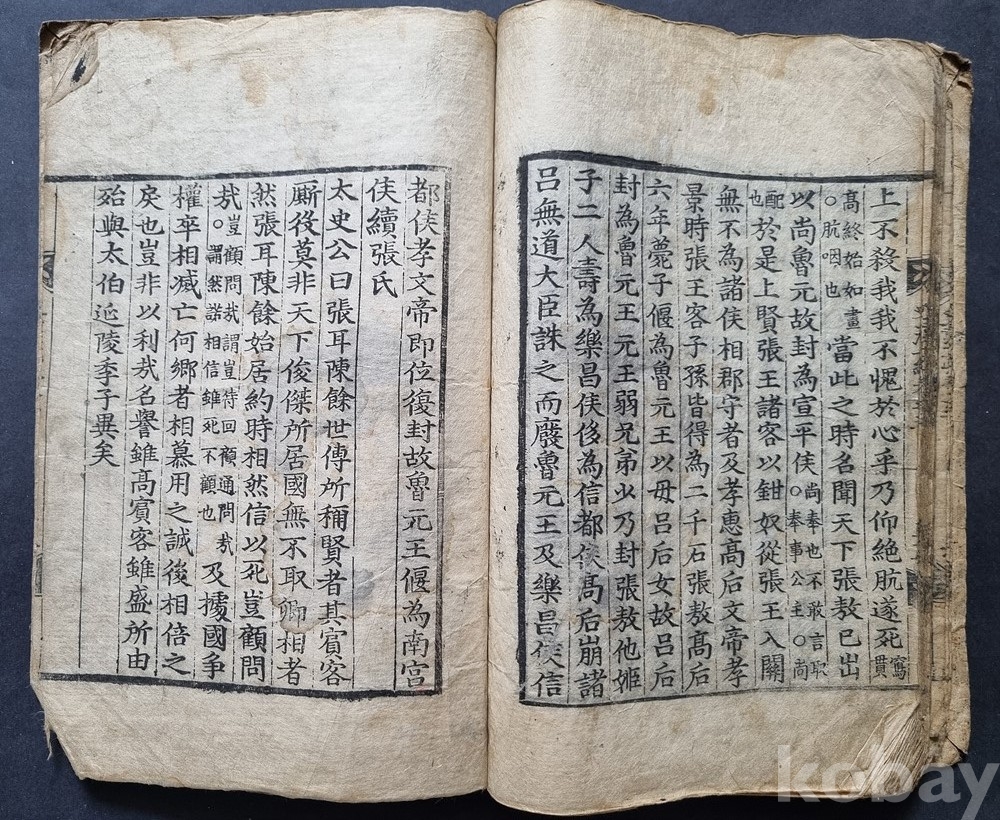 上不殺我我不愧於心乎乃仰絶肮遂死 寫貫
高終始如畫 ○肮咽也 當此之時名聞天下張敖已出
以尚魯元故封為宣平侯 ○尚奉也不敢言取 ○奉事公主○尚
配也 於是上賢張王諸客以鉗奴從張王入關
無不為諸侯相郡守者及孝惠高后文帝孝
景時張王客子孫皆得為二千石張敖高后
六年薨子偃為魯元王以母呂后女故呂后
封為魯元王元王弱兄弟少乃封張敖他姬
子二人壽為樂昌侯侈為信都侯高后崩諸
呂無道大臣誅之而廢魯元王及樂昌侯信
都侯孝文帝即位復封故魯元王偃為南宮
侯續張氏
太史公曰張耳陳餘世傳所稱賢者其賓客
厮役莫非天下俊傑所居國無不取卿相者
然張耳陳餘始居約時相然信以死豈顧問
㢤 豈顧問㢤謂豈待回顧通問㢤 ○謂然諾相信雖死不顧也 及據國争
權卒相滅亡何鄉者相慕用之誠後相倍之
戾也豈非以利㢤名譽雖高賓客雖盛所由
殆與太伯延陵季子異矣
kobay